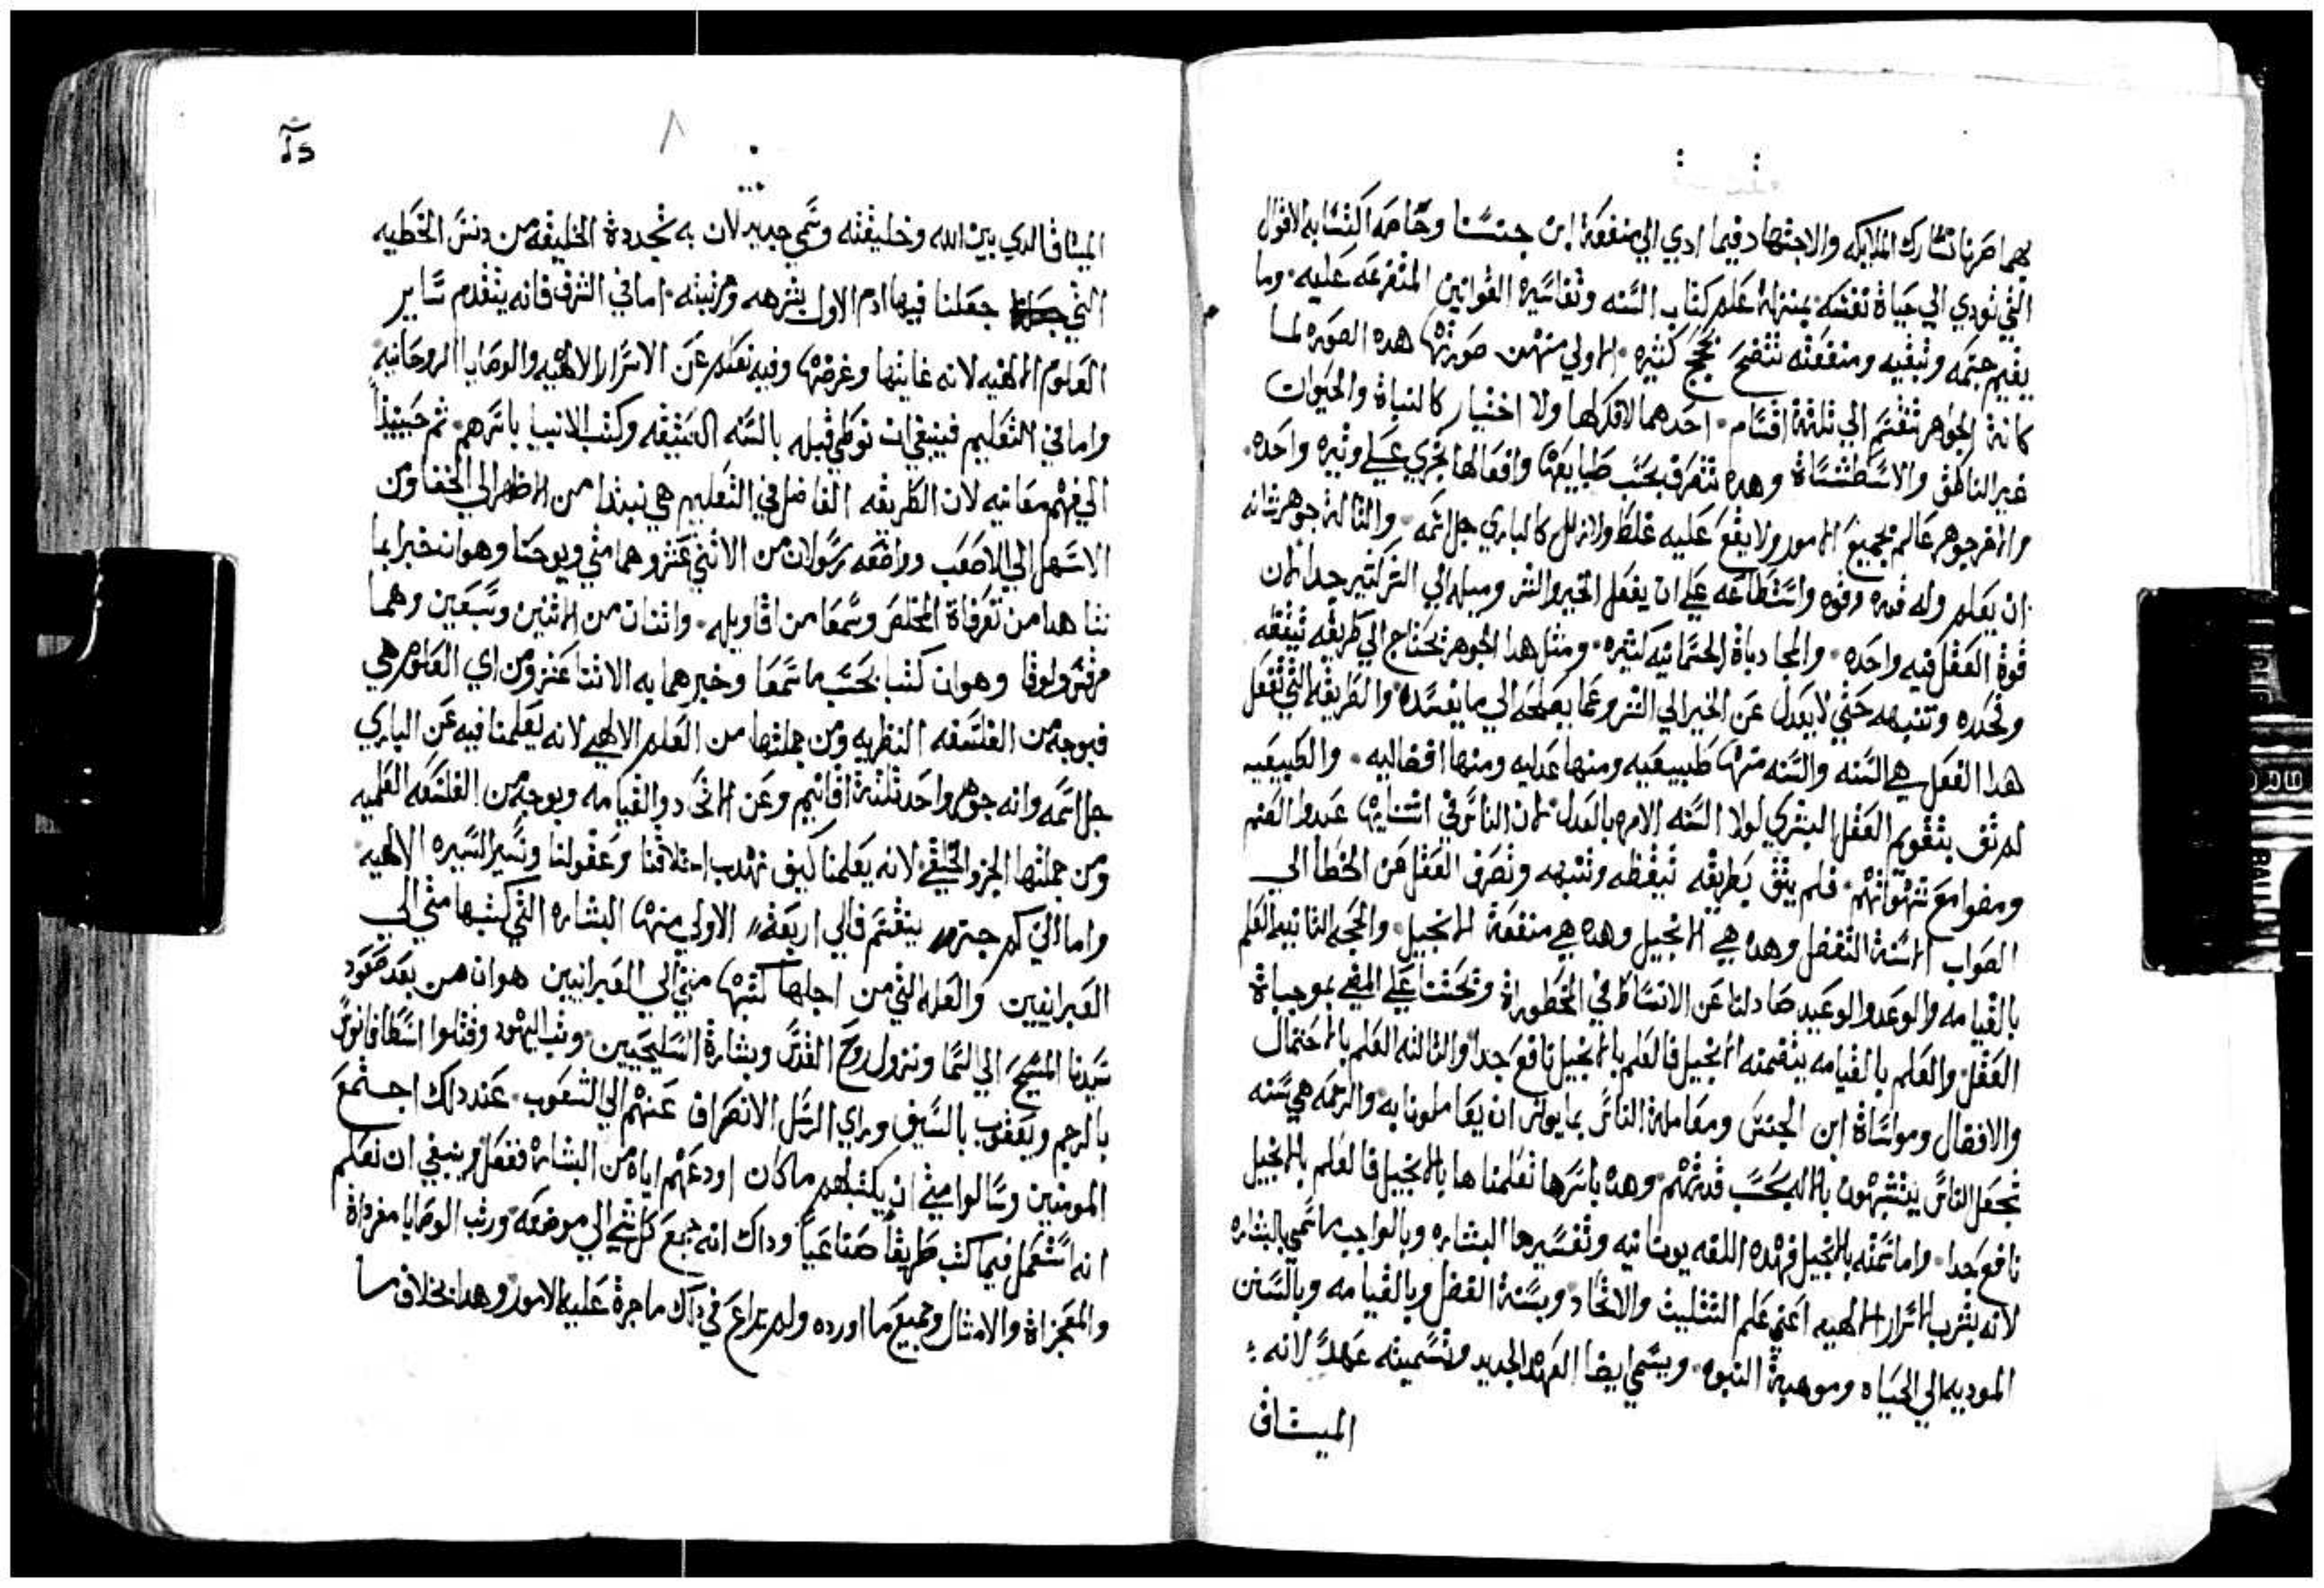 بهما صرنا نشارك الملايكه والاجتهاد فيما ادي الي منفعة ابن جنسنا وخاصه اكتسابه الاقوال
التي تودي الي حياة نفسه بمنزلة علم كتاب السنه وتفاسيره القوانين المتفرعه عليه وما
يقيم جسمه وتبقيه ومنفعته تتضح بحجج كثيره الاولي منهن صورتها هده الصوره لما
كانة الجواهر تنقسم الي تلتة اقسام احدهما لا فكر لها ولا اختيار كالنباة والحيوان
غير الناطق والاسطقساة وهده تتصرف بحسب طبايعها وافعالها تجري علي وتيره واحده
والاخر جوهر عالم بجميع الامور ولا يقع عليه غلط ولا زلل كالباري جل اسمه والتالة جوهر شانه
ان يعلم وله قدره وقوه واستطاعه علي ان يفعل الخير والشر وميله الي الشر كتير جدا لان
قوة العقل فيه واحده والمجادباة الجسمانيه كتيره ومتل هدا الجوهر يحتاج الي طريقه تيقظه
وتحدره وتنبهه حتي لا يعدل عن الخير الي الشر وعما يصلحه الي ما يفسده والطريقه التي تفعل
هدا الفعل هي السنه والسنه منها طبيعيه ومنها عدليه ومنها افضاليه والطبيعيه
لم تف بتقويم العقل البشري لولا السنه الامره بالعدل لان الناس في اتنايها عبدوا الصنم
ومضوا مع شهواتهم فلم يتق بطريقه تيقظه وتنبهه وتصرف العقل من الخطا الي
الصواب الا سنة التفضل وهده هي الانجيل وهده هي منفعة الانجيل والحجه التانيه العلم
بالقيامه والوعد والوعيد صادلنا عن الانبساط في المحظوراة وتحتنا علي المضي بموجباة
العقل والعلم بالقيامه يتضمنه الانجيل فالعلم بالانجيل نافع جداً والتالته العلم بالاحتمال
والافضال ومواساة ابن الجنس ومعاملة الناس بما يوتر ان يعاملونا به والرحمه هي سنه
تجعل الناس يتشبهون بالاله بحسب قدرتهم وهده باسرها تعلمنا ها بالانجيل فالعلم بالانجيل
نافع جدا واما سمته بالانجيل فهده اللفه يونانيه وتفسيرها البشاره وبالواجب ما سمي بالبشاره
لانه بشرب الاسرار الالهيه اعني علم التتليت والاتحاد وبسنة الفضل وبالقيامه وبالسنن
الموديه الي الحياه وموهبة النبوه ويسمي ايضا العهد الجديد وتسميته عهداً لانه
الميتاق
٨
الميتاق الدي بين الله وخليقته وسمي جديد لان به تجددة الخليقه من دنس الخطيه
التي جعلنا فيها ادم الاول بشرهه ومرتبته اما في الشرف فانه يتقدم ساير
العلوم الالهيه لانه غايتها وغرضها وفيه نعلم عن الاسرار الالاهيه والوصايا الروحانيه
واما في التعليم فينبغي ان نوطي قبله بالسنه العتيقه وكتب الانبيا باسرهم تم حينيداً
الي فهم معانيه لان الطريقه الفاضل في التعليم هي نبتدا من الاظهر الي الخفا ومن
الاسهل الي الاصعب وواضعه رسولان من الاتني عشر وهما متي ويوحنا وهوان خبرا بما
شاهدا من تصرفاة المخلص وسمعا من اقاويله واتنان من الاتنين وسبعين وهما
مرقس ولوقا وهوان كتبا بحسب ما سمعا وخبرهما به الاتنا عشر ومن اي العلوم هي
فبوجه من الفلسفه النظريه ومن جملتها من العلم الالهي لانه يعلمنا فيه عن الباري
جل اسمه وانه جوهر واحد تلتة اقانيم وعن الاتحاد والقيامه وبوجه من الفلسفه العلميه
ومن جملتها الجزو الخلقي لانه يعلمنا كيف نهدب اخلاقنا وعقولنا ونسير السيره الالهيه
واما الي كم جزو ينقسم فالي اربعة الاولي منها البشاره التي كتبها متي الي
العبرانيين والعله التي من اجلها كتبها متي الي العبرانيين هوان من بعد صعود
سيدنا المسيح الي السما ونزول روح القدس وبشارة السليحيين وتب اليهود وقتلوا اسطافانوس
بالرجم ويعقوب بالسيف وراي الرسل الانصراف عنهم الي الشعوب عند دلك اجتمع
المومنين وسالوا متي ان يكتب لهم ما كان اودعهم اياه من البشاره ففعل وينبغي ان نعلم
انه استعمل فيما كتب طريقاً صناعياً وداك انه جمع كل شي الي موضعه ورتب الوصايا مفرداة
والمعجزاة والامتال وجميع ما اورده ولم يراع في دلك ما جرة عليه الامور وهدا بخلاف ما